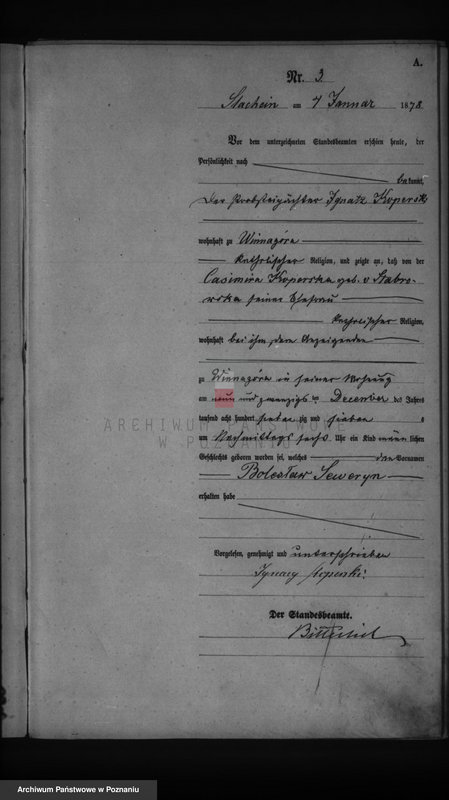 A.
Nr. 3.
Stachein am 4 Januar 1878
Vor dem unterzeichneten Standesbeamten erschien heute, der
Persönlichkeit nach
bekannt,
Der Probsteipächter Ignatz Koperski
wohnhaft zu Winnagóra
katholischer Religion, und zeigte an, daß von der
Casimira Koperska geb. v Stabro-
wska seiner Ehefrau
katholischer Religion,
wohnhaft bei ihm, dem Anzeigenden
zu Winnagóra in seiner Wohnung
am neun und zwanzigsten December des Jahres
tausend acht hundert sieben zig und sieben
um Nachmittags sechs Uhr ein Kind männlichen
Geschlechts geboren worden sei, welches den Vornamen
Bolesław Seweryn
erhalten habe
Vorgelesen, genehmigt und unterschrieben
Ignacy Koperski.
Der Standesbeamte.
ARCHIWUM PAŃSTWOWE
W POZNANIU
Archiwum Państwowe w Poznaniu